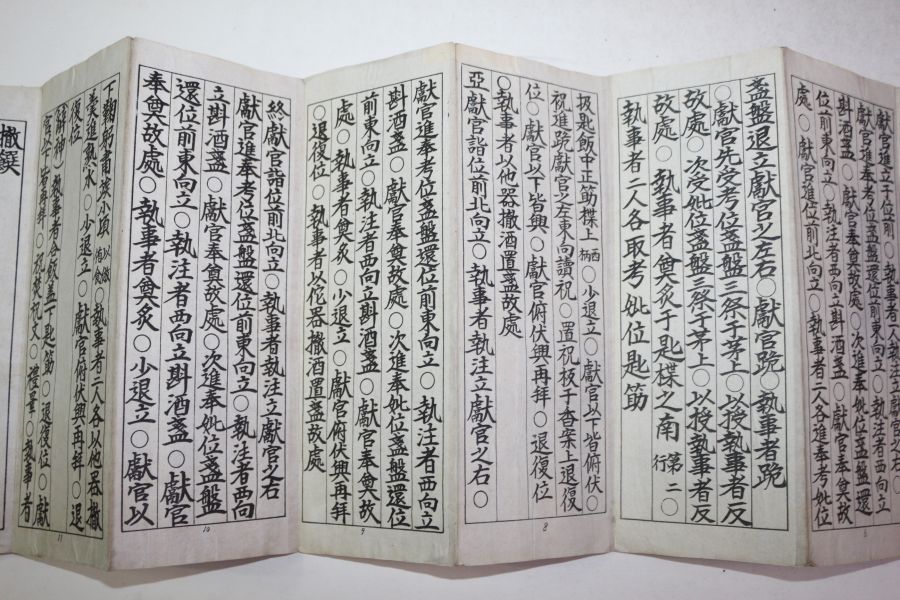 獻官進奉考位盞盤還位前東向立○執注者西向立
斟酒盞○獻官奉奠故處○次進奉妣位盞盤還
位前東向立○執注者西向立斟酒盞○獻官奉奠故
處○獻官進位前北向立○執事者二人各進奉考妣位
盞盤退立獻官之左右○獻官跪○執事者跪
○獻官先受考位盞盤三祭于茅上○以授執事者反
故處○次受妣位盞盤三祭于茅上○以授執事者反
故處○執事者奠炙于匙楪之南第二行○
執事者二人各取考妣位匙筯
扱匙飯中正筯楪上西柄○少退立○獻官以下皆俯伏○
祝進跪獻官之左東向讀祝○置祝板于香案上退復
位○獻官以下皆興○獻官俯伏興再拜○退復位
○執事者以他器撤酒置盞故處
亞獻官詣位前北向立○執事者執注立獻官之右○
8
獻官進奉考位盞盤還位前東向立○執注者西向立
斟酒盞○獻官奉奠故處○次進奉妣位盞盤還位
前東向立○執注者西向立斟酒盞○獻官奉奠故
處○執事者奠炙○少退立○獻官俯伏興再拜
○退復位○執事者以佗器撤酒置盞故處
9
終獻官詣位前北向立○執事者執注立獻官之右
獻官進奉考位盞盤還位前東向立○執注者西向
立斟酒盞○獻官奉奠故處○次進奉妣位盞盤
還位前東向立○執注者西向立斟酒盞○獻官
奉奠故處○執事者奠炙○少退立○獻官以
10
下鞠躬肅竢小頃○執事者二人各以他器撤
羹進熟水○少退立○獻官俯伏興再拜○退
復位
辭神○執事者合飯盖下匙筯○退復位○獻
官以下皆再拜○祝焚祝文○禮畢○執事者
11
撤饌